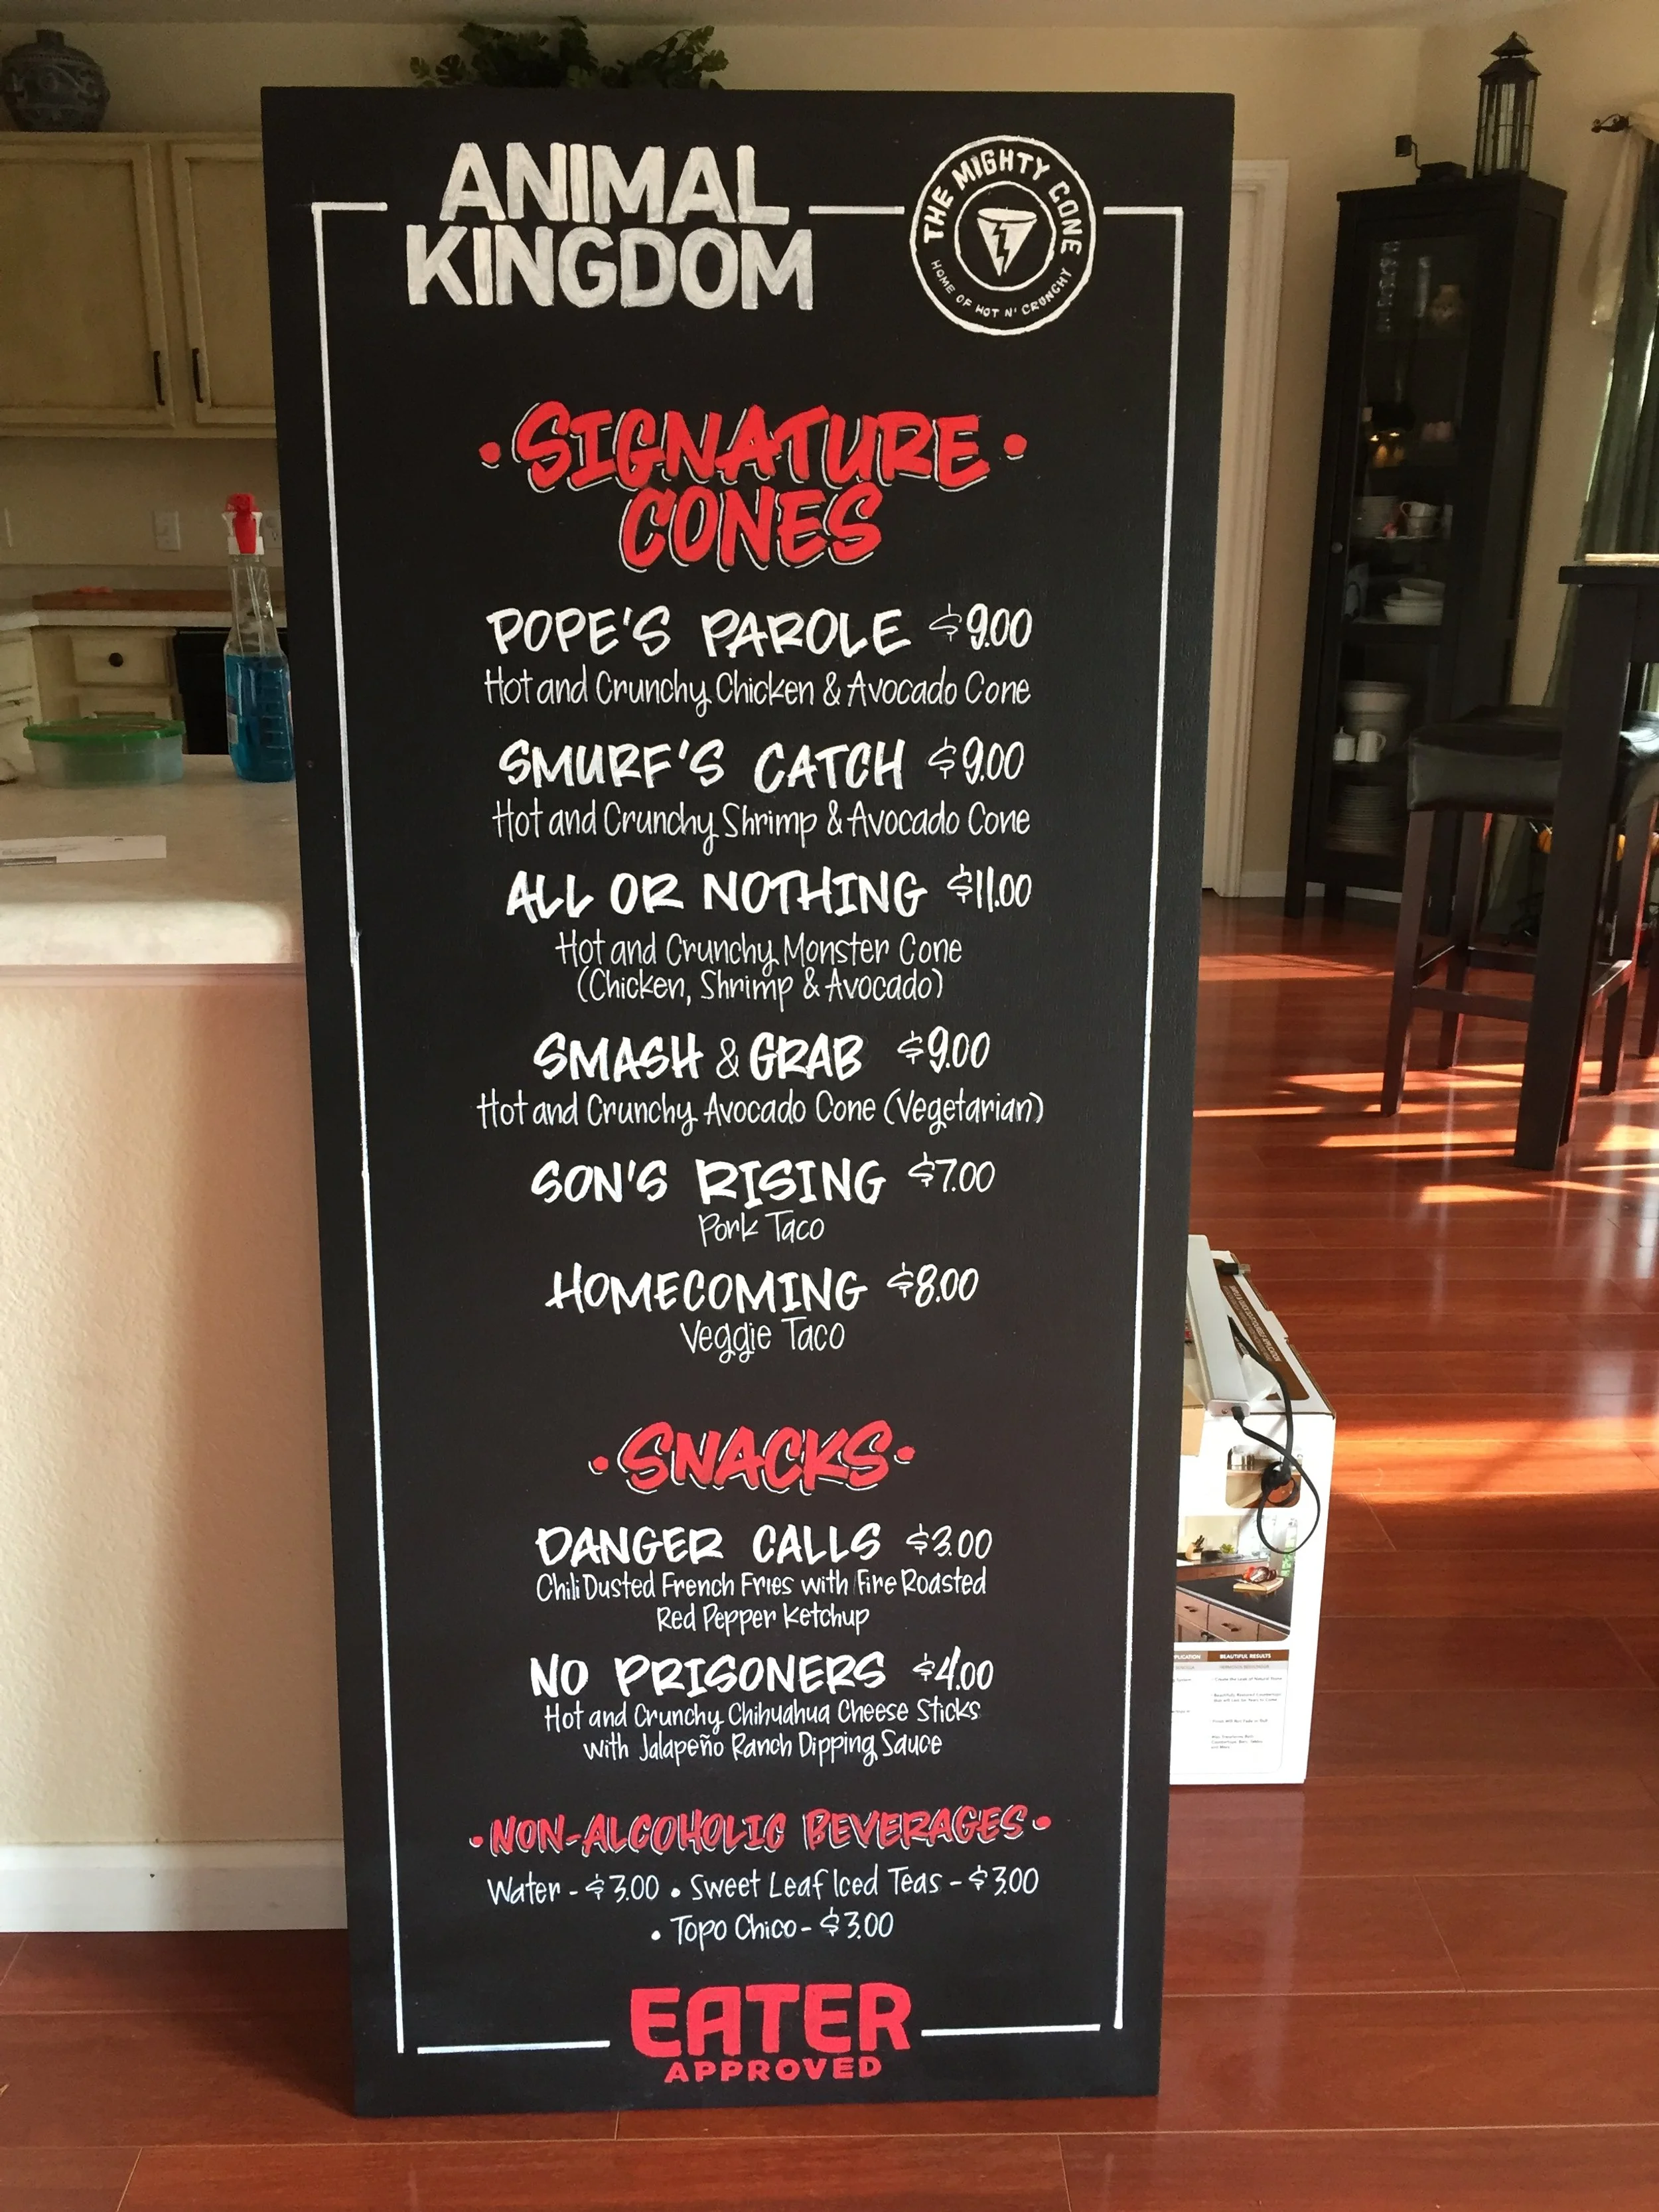 ANIMAL
KINGDOM
THE MIGHTY CONE
HOME OF HOT N' CRUNCHY
• SIGNATURE •
CONES
POPE'S PAROLE $9.00
Hot and Crunchy Chicken & Avocado Cone
SMURF'S CATCH $9.00
Hot and Crunchy Shrimp & Avocado Cone
ALL OR NOTHING $11.00
Hot and Crunchy Monster Cone
(Chicken, Shrimp & Avocado)
SMASH & GRAB $9.00
Hot and Crunchy Avocado Cone (Vegetarian)
SON'S RISING $7.00
Pork Taco
HOMECOMING $8.00
Veggie Taco
• SNACKS •
DANGER CALLS $3.00
Chili Dusted French Fries with Fire Roasted
Red Pepper Ketchup
NO PRISONERS $4.00
Hot and Crunchy Chihuahua Cheese Sticks
with Jalapeño Ranch Dipping Sauce
• NON-ALCOHOLIC BEVERAGES •
Water - $3.00 • Sweet Leaf Iced Teas - $3.00
• Topo Chico - $3.00
EATER
APPROVED
BEAUTIFUL RESULTS